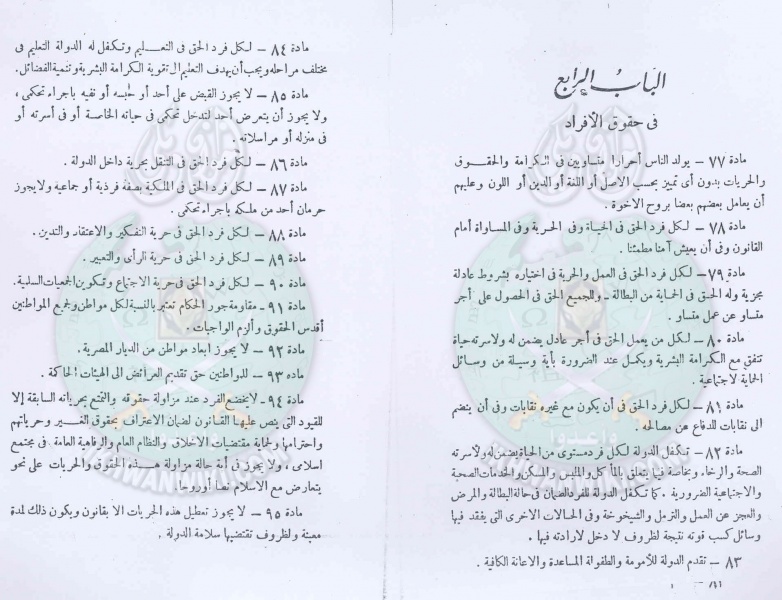 الباب الرابع
فى حقوق الأفراد
مادة ٧٧ – يولد الناس أحرارا متساويين فى الكرامة والحقوق
والحريات بدون أى تمييز بحسب الاصل أو اللغة أو الدين أو اللون وعليهم
أن يعامل بعضهم بعضا بروح الاخوة .
مادة ٧٨ – لكل فرد الحق فى الحياة وفى الحرية وفى المساواة أمام
القانون وفى أن يعيش آمنا مطمئنا .
مادة ٧٩ – لكل فرد الحق فى العمل والحرية فى اختياره بشروط عادلة
مجزية وله الحق فى الحماية من البطالة – وللجميع الحق فى الحصول على أجر
متساو عن عمل متساو .
مادة ٨٠ – لكل من يعمل الحق فى أجر عادل يضمن له ولاسرته حياة
تتفق مع الكرامة البشرية ويكمل عند الضرورة بأية وسيلة من وسائل
الحماية لاجتماعية .
مادة ٨١ – لكل فرد الحق فى أن يكون مع غيره نقابات وفى أن ينضم
الى نقابات للدفاع عن مصالحه
مادة ٨٢ – تكفل الدولة لكل فرد مستوى من الحياة يضمن له ولاسرته
الصحة والرخاء وبخاصة فيما يتعلق بالمأكل والملبس والمسكن والخدمات الصحية
والاجتماعية الضرورية . كما تكفل الدولة للفرد الضمان فى حالة البطالة والمرض
والعجز عن العمل والترمل والشيخوخة وفى الحالات الاخرى التى يفقد فيها
وسائل كسب قوته نتيجة لظروف لا دخل لارادته فيها .
٨٣ – تقدم الدولة للأمومة والطفولة المساعدة والاعانة الكافية .
مادة ٨٤ – لكل فرد الحق فى التعليم وتكفل له الدولة التعليم فى
مختلف مراحله ويجب أن يهدف التعليم الى تقوية الكرامة البشرية وتنمية الفضائل .
مادة ٨٥ – لا يجوز القبض على أحد أو حبسه أو نفيه باجراء تحكمى ،
ولا يجوز أن يتعرض أحد لتدخل تحكمى فى حياته الخاصة أو فى أسرته أو
فى منزله أو مراسلاته .
مادة ٨٦ – لكل فرد الحق فى التنقل بحرية داخل الدولة .
مادة ٨٧ – لكل فرد الحق فى الملكية بصفة فردية أو جماعية ولا يجوز
حرمان أحد من ملكه باجراء تحكمى .
مادة ٨٨ – لكل فرد الحق فى حرية التفكير والاعتقاد والتدين .
مادة ٨٩ – لكل فرد الحق فى حرية الرأى والتعبير .
مادة ٩٠ – لكل فرد الحق فى حرية الاجتماع وتكوين الجمعيات السلمية .
مادة ٩١ – مقاومة جور الحكام تعتبر بالنسبة لكل مواطن ولجميع المواطنين
أقدس الحقوق وألزم الواجبات .
مادة ٩٢ – لا يجوز ابعاد مواطن من الديار المصرية .
ماده ٩٣ – للمواطنين حق تقديم العرائض الى الهيئات الحاكمة .
مادة ٩٤ – لا يخضع الفرد عند مزاولة حقوقه والتمتع بحرياته السابقة إلا
للقيود التى ينص عليها القانون لضمان الاعتراف بحقوق الغير وحرياتهم
واحترامها ولحماية مقتضيات الاخلاق والنظام العام والرفاهية العامة فى مجتمع
اسلامى ، ولا يجوز فى أية حالة مزاولة هذه الحقوق والحريات على نحو
يتعارض مع الاسلام نصا أو روحا .
مادة ٩٥ – لا يجوز تعطيل هذه الحريات الا بقانون ويكون ذلك لمدة
معينة ولظروف تقتضيها سلامة الدولة .